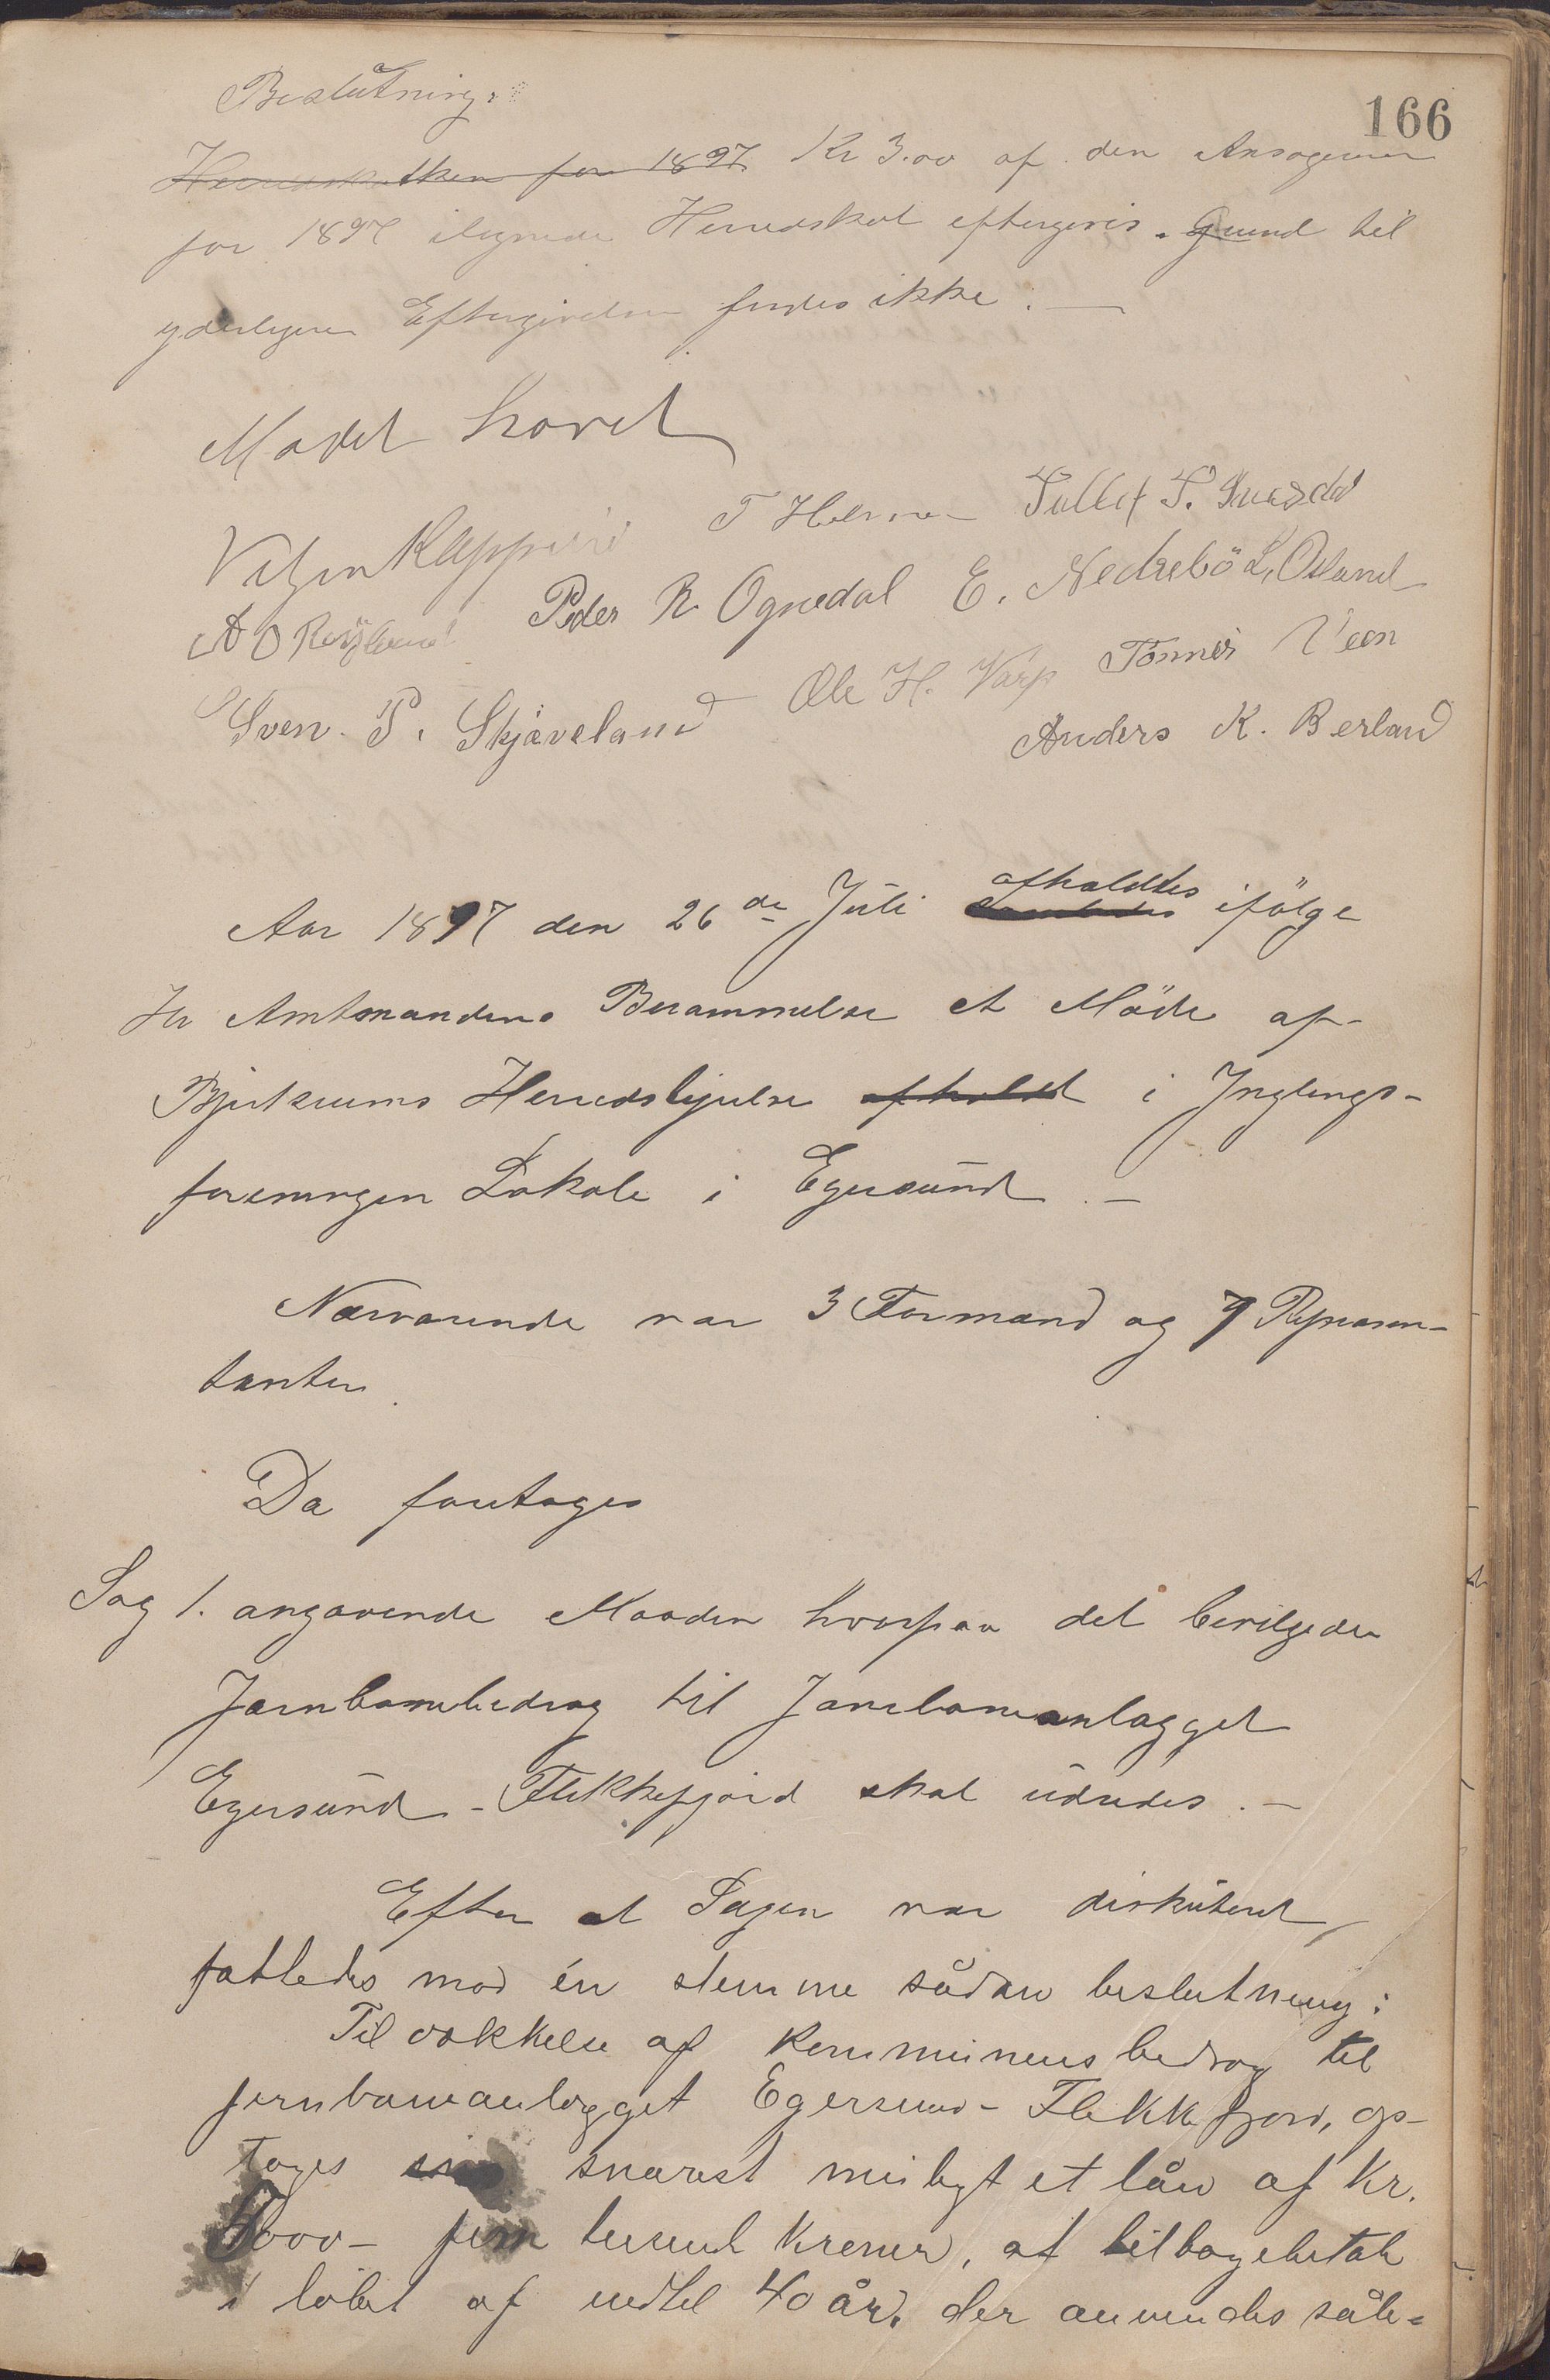 166
Beslutning:
Herredskatten for 1897. Kr 3.00 af den Ansøgeren
for 1897 ilignede Herredskat eftergives. Grund til
yderligere Eftergivelse findes ikke. —
Mødet hævet
T Tollef T.
A O Peder R Ognedal E. Nedrebö L. Osland
Sven P. Skjæveland Ole H. Varp Tönnes Veen
Anders K. Berland
afholdtes
Aar 1897 den 26de Juli ifölge
Hr Amtmandens Berammelse et Möde af
Bjerkreims Herredstyrelse afholdt i Ynglings-
foreningen Lokale i Egersund. —
Nærværende var 3 Formænd og 7 Repræsen-
tanter.
Da foretages
Sag 1. angaaende Maaden hvorpaa det bevilgede
Jernbanebidrag til Jernbaneanlægget
Egersund - Flekkefjord skal udredes. —
Efter at Sagen var diskuteret,
fattedes mod én stemme sådan beslutning:
Til dækkelse af kommunens bidrag til
jernbaneanlægget Egersund - Flekkefjord, op-
tages snarest muligt et lån af Kr.
5000 - fem tusend kroner, at tilbagebetale
i löbet af indtil 40 år, der anvendes såle-